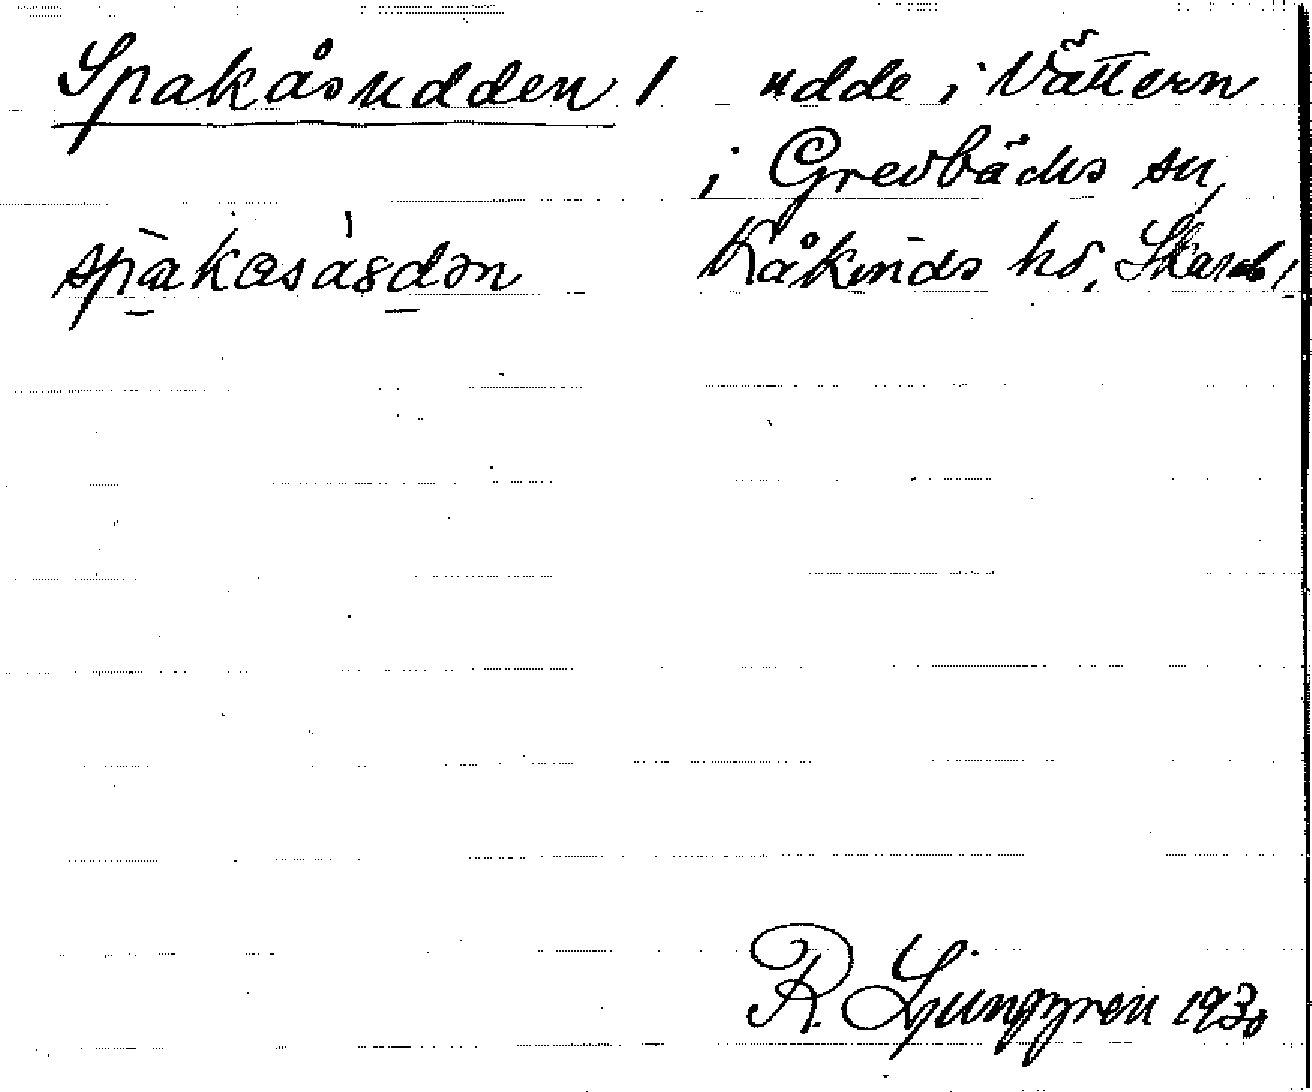 Spakåsudden / udde i Vättern
i Grevbäcks sn,
spakasasdən Kåkinds hd, Skarab.,
R. Ljunggren 1930